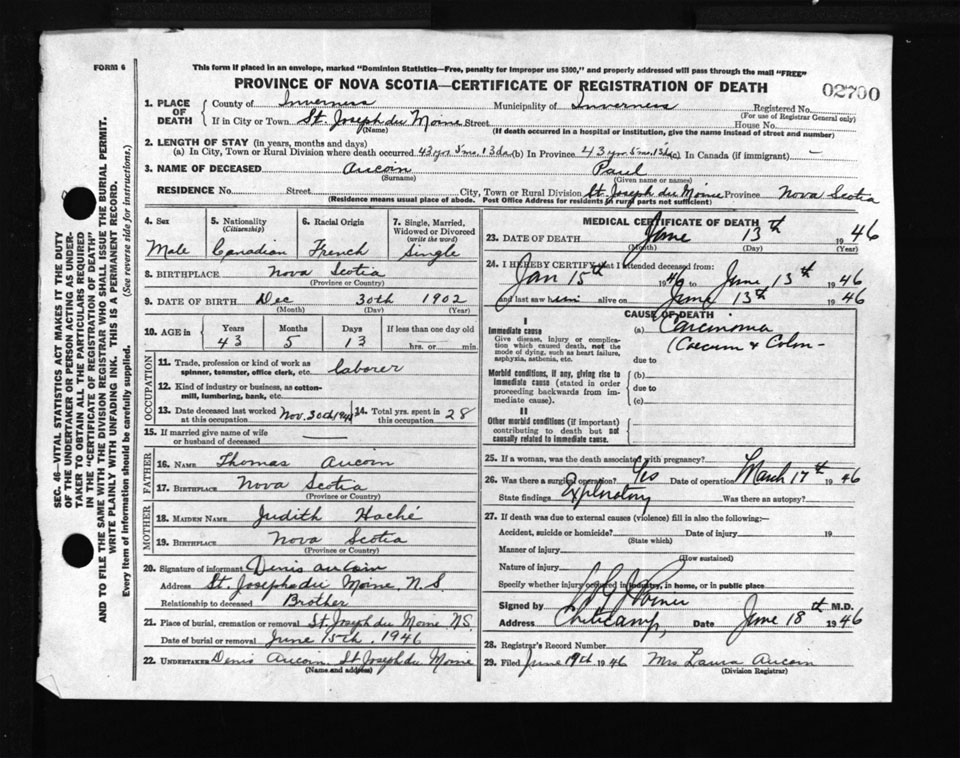 FORM 6
This form if placed in an envelope, marked "Dominion Statistics—Free, penalty for improper use $300," and properly addressed will pass through the mail "FREE"
PROVINCE OF NOVA SCOTIA—CERTIFICATE OF REGISTRATION OF DEATH
02700
1. PLACE OF DEATH
County of Inverness Municipality of Inverness Registered No.
(For use of Registrar General only)
If in City or Town St. Joseph du Moine Street House No.
(Name) (If death occurred in a hospital or institution, give the name instead of street and number)
2. LENGTH OF STAY (in years, months and days)
(a) In City, Town or Rural Division where death occurred 43 yrs 5 ms. 13 da (b) In Province 43 yrs 5 ms. 13 da (c) In Canada (if immigrant) —
3. NAME OF DECEASED Aucoin Paul
(Surname) (Given name or names)
RESIDENCE No. Street City, Town or Rural Division St. Joseph du Moine Province Nova Scotia
(Residence means usual place of abode. Post Office Address for residents in rural parts not sufficient)
4. Sex
Male
5. Nationality
(Citizenship)
Canadian
6. Racial Origin
French
7. Single, Married,
Widowed or Divorced
(write the word)
Single
8. BIRTHPLACE Nova Scotia
(Province or Country)
9. DATE OF BIRTH Dec 30th 1902
(Month) (Day) (Year)
10. AGE in
Years Months Days If less than one day old
43 5 13 hrs. or min.
OCCUPATION
11. Trade, profession or kind of work as
spinner, teamster, office clerk, etc. laborer
12. Kind of industry or business, as cotton-
mill, lumbering, bank, etc.
13. Date deceased last worked
at this occupation Nov. 30th
14. Total yrs. spent in
this occupation 28
15. If married give name of wife
or husband of deceased —
FATHER
16. NAME Thomas Aucoin
17. BIRTHPLACE Nova Scotia
(Province or Country)
MOTHER
18. MAIDEN NAME Judith Haché
19. BIRTHPLACE Nova Scotia
(Province or Country)
20. Signature of informant Denis Aucoin
Address St. Joseph du Moine N.S.
Relationship to deceased Brother
21. Place of burial, cremation or removal St. Joseph du Moine N.S.
Date of burial or removal June 15th, 1946
22. UNDERTAKER Denis Aucoin St. Joseph du Moine
(Name and address)
MEDICAL CERTIFICATE OF DEATH
23. DATE OF DEATH June 13th 1946
(Month) (Day) (Year)
24. I HEREBY CERTIFY that I attended deceased from:
Jan 15th 1946 to June 13th 1946
and last saw him alive on June 13th 1946
CAUSE OF DEATH
I
Immediate cause
Give disease, injury or complica-
tion which caused death, not the
mode of dying, such as heart failure,
asphyxia, asthenia, etc.
(a) Carcinoma
(Caecum & Colon—
due to
Morbid conditions, if any, giving rise to
immediate cause (stated in order
proceeding backwards from im-
mediate cause).
(b)
due to
(c)
II
Other morbid conditions (if important)
contributing to death but not
causally related to immediate cause.
25. If a woman, was the death associated with pregnancy?
26. Was there a surgical operation? Yes Date of operation March 17th 1946
State findings Exploratory Was there an autopsy?
27. If death was due to external causes (violence) fill in also the following:—
Accident, suicide or homicide? Date of injury 19
(State which)
Manner of injury
(How sustained)
Nature of injury
Specify whether injury occurred in industry, in home, or in public place
Signed by M.D.
Address Cheticamp, Date June 18th 1946
28. Registrar's Record Number
29. Filed June 19th 1946 Mrs. Laura Aucoin
(Division Registrar)
SEC. 46—VITAL STATISTICS ACT MAKES IT THE DUTY
OF THE UNDERTAKER OR PERSON ACTING AS UNDER-
TAKER TO OBTAIN ALL THE PARTICULARS REQUIRED
IN THE "CERTIFICATE OF REGISTRATION OF DEATH"
AND TO FILE THE SAME WITH THE DIVISION REGISTRAR WHO SHALL ISSUE THE BURIAL PERMIT.
WRITE PLAINLY WITH UNFADING INK. THIS IS A PERMANENT RECORD.
Every item of information should be carefully supplied. (See reverse side for instructions.)